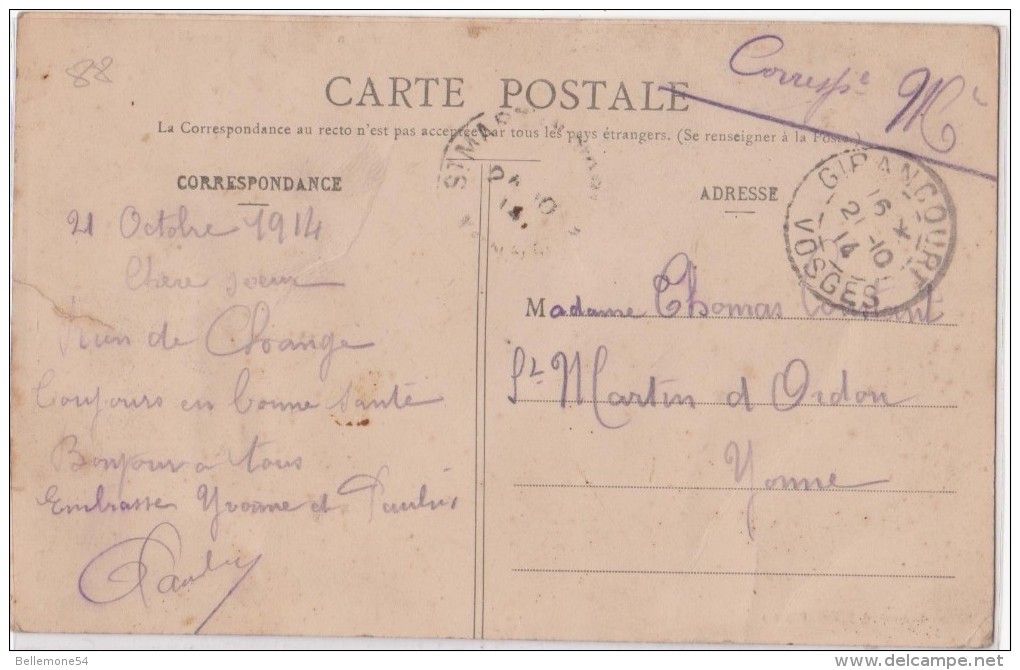 88
Corresp.ce Mre
CARTE POSTALE
La Correspondance au recto n'est pas acceptée par tous les pays étrangers. (Se renseigner à la Poste.)
CORRESPONDANCE
ADRESSE
GIRANCOURT
16
21-10
14
VOSGES
St MAR
10
14
21 Octobre 1914
Chère soeur
Rien de Change
Toujours en bonne Santé
Bonjour a tous
Embrasse Yvonne et
Madame Thomas
St Martin d Ordon
Yonne
Bellemone54
www.delcampe.net